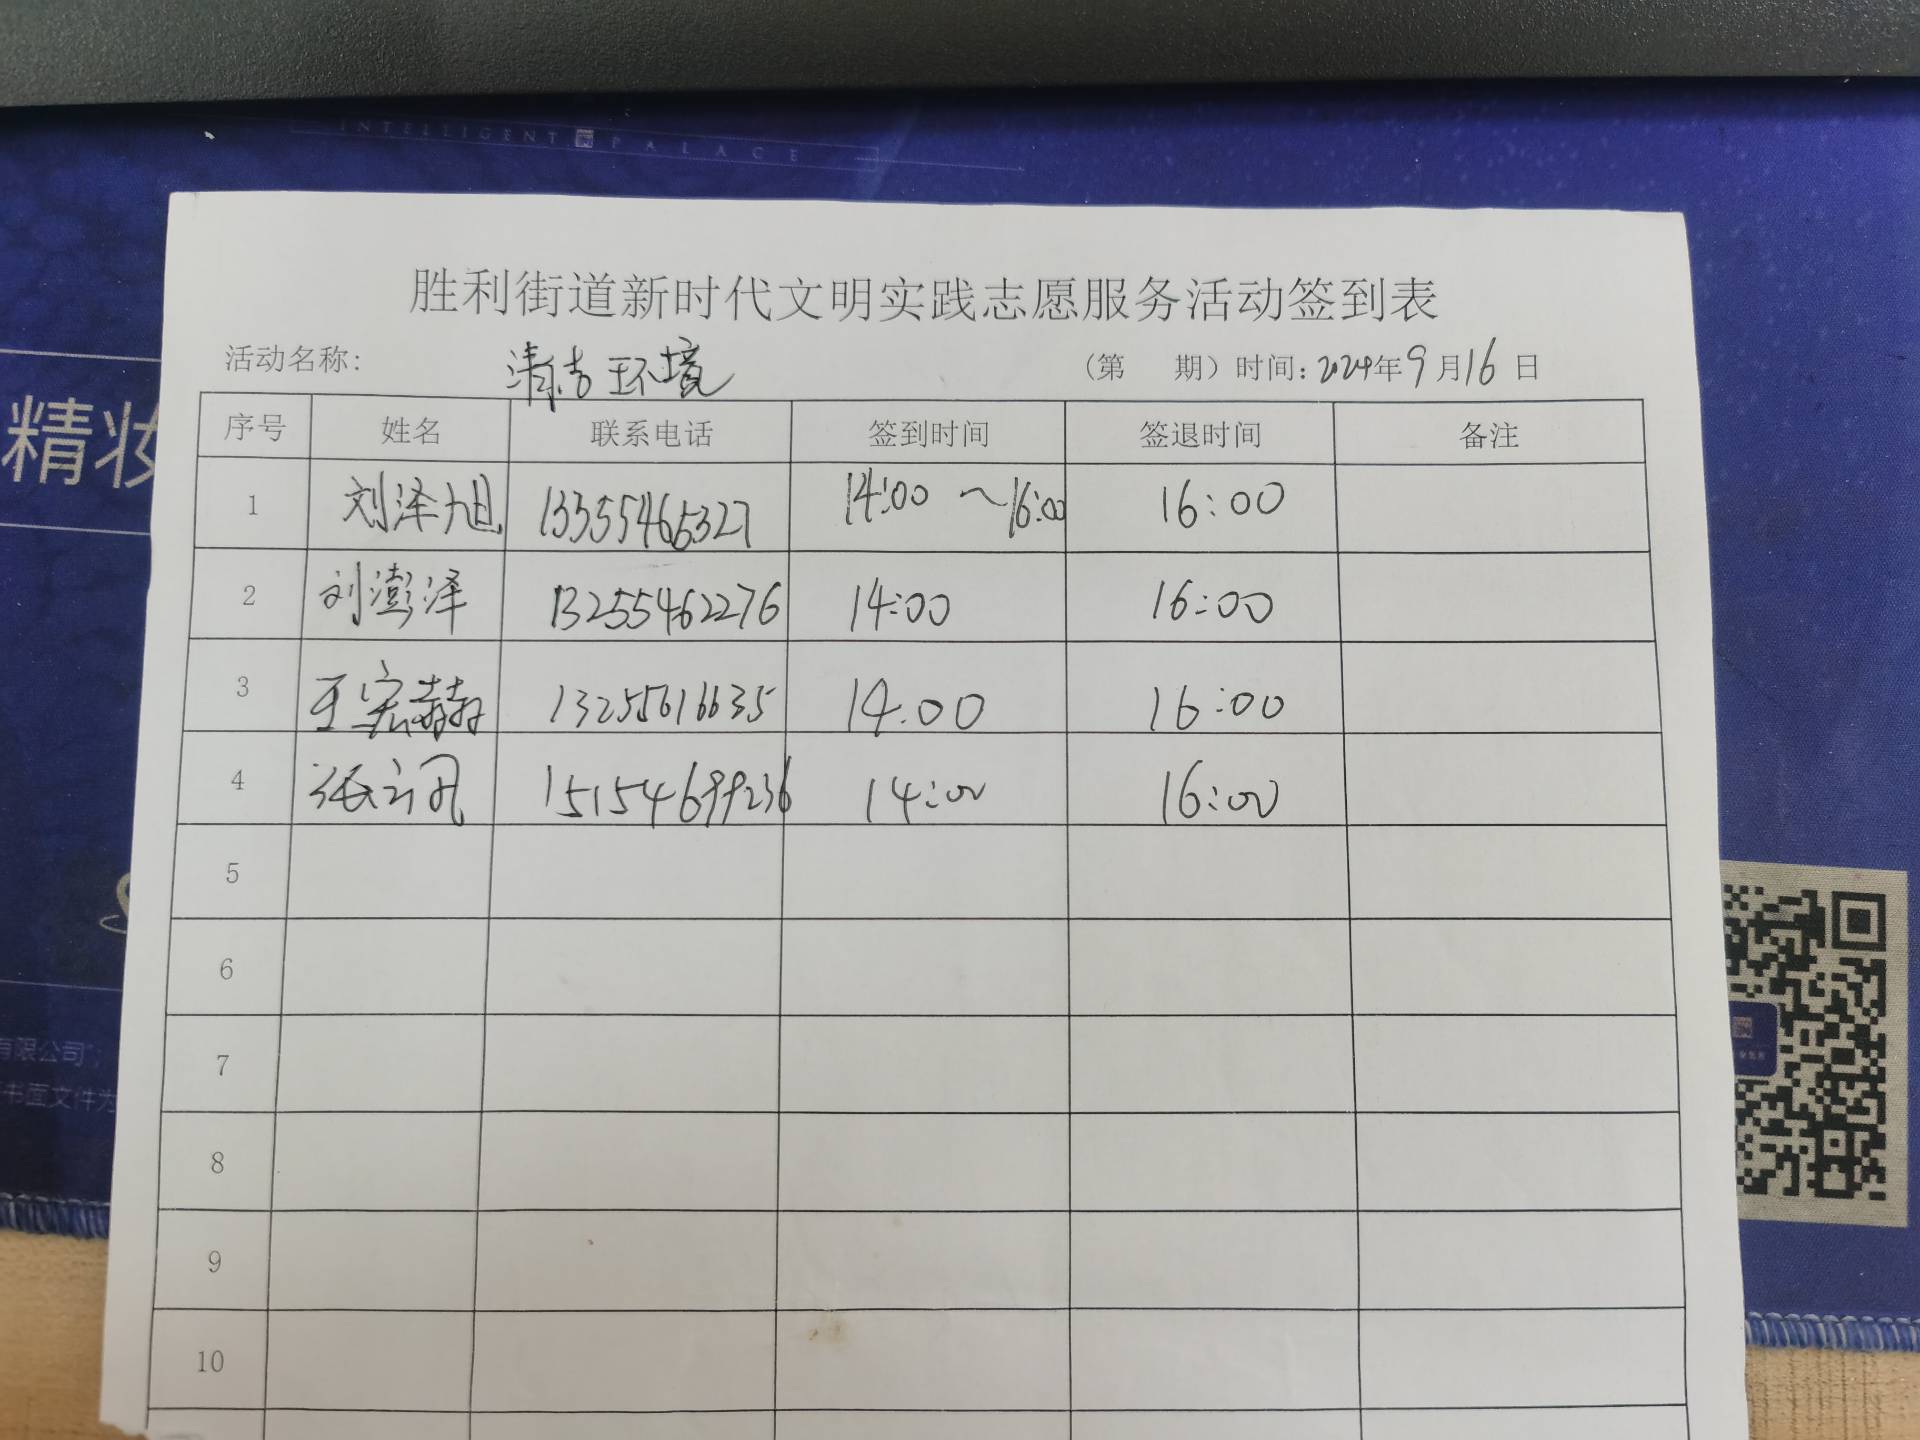 INTELLIGENT PALACE
胜利街道新时代文明实践志愿服务活动签到表
活动名称: 清洁环境 (第 期) 时间: 2024年9月16日
序号 姓名 联系电话 签到时间 签退时间 备注
1 刘泽旭 13355465327 14:00 ~16:00 16:00
2 刘澎泽 13255462276 14:00 16:00
3 王宏赫 13255616635 14.00 16:00
4 张 15154699236 14:00 16:00
5
6
7
8
9
10
精妆
有限公司";
书面文件为